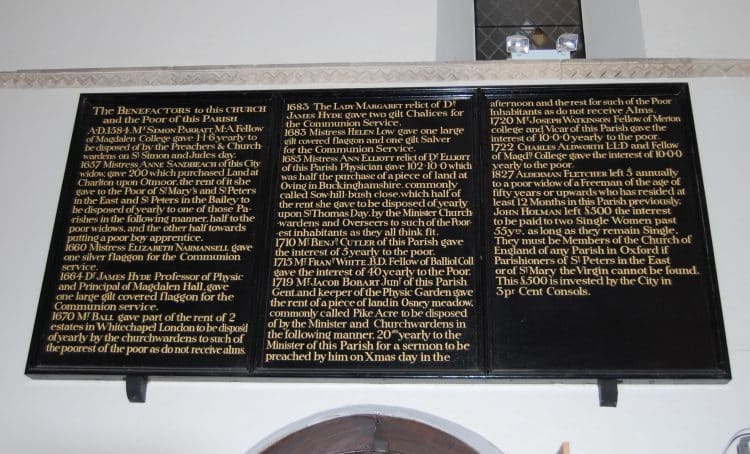 The Benefactors to this Church
and the Poor of this Parish
A.D. 1584. Mr Simon Parratt, M:A. Fellow
of Magdalen College gave 1·1·6 yearly to
be disposed of by the Preachers & Church-
wardens on St Simon and Judes day.
1657 Mistress Anne Sandbeach of this City
widow, gave 200 which purchased Land at
Charlton upon Otmoor, the rent of it she
gave to the Poor of St Mary's and St Peters
in the East and St Peters in the Bailey to
be disposed of yearly to one of those Pa-
rishes in the following manner, half to the
poor widows, and the other half towards
putting a poor boy apprentice.
1660 Mistress Elizabeth Narmansell, gave
one silver flaggon for the Communion
service.
1664 Dr James Hyde Professor of Physic
and Principal of Magdalen Hall, gave
one large gilt covered flaggon for the
Communion service.
1670 Mr Ball gave part of the rent of 2
estates in Whitechapel London to be dispos'd
of yearly by the churchwardens to such of
the poorest of the poor as do not receive alms.
1683 The Lady Margaret relict of Dr
James Hyde gave two gilt Chalices for
the Communion Service.
1683 Mistress Helen Low gave one large
gilt covered flaggon and one gilt Salver
for the Communion Service.
1685 Mistress Ann Elliott relict of Dr Elliott
of this Parish Physician gave 102·10·0 which
was half the purchase of a piece of land at
Oving in Buckinghamshire, commonly
called Sow-hill-bush close, which half of
the rent she gave to be disposed of yearly
upon St Thomas Day, by the Minister Church-
wardens and Overseers to such of the Poor-
est inhabitants as they all think fit.
1710 Mr Benjn Cutler of this Parish gave
the interest of 5 yearly to the poor.
1715 Mr Frans White, B.D. Fellow of Balliol Coll
gave the interest of 40 yearly to the Poor.
1719 Mr Jacob Bobart Junr of this Parish
Gent, and Keeper of the Physic Garden gave
the rent of a piece of land in Osney meadow,
commonly called Pike Acre to be disposed
of by the Minister and Churchwardens in
the following manner, 20s yearly to the
Minister of this Parish for a sermon to be
preached by him on Xmas day in the
afternoon and the rest for such of the Poor
Inhabitants as do not receive Alms.
1720 Mr Joseph Watkinson Fellow of Merton
college and Vicar of this Parish gave the
interest of 10·0·0 yearly to the poor.
1722 Charles Aldworth L:L:D and Fellow
of Magdn College gave the interest of 10·0·0
yearly to the poor.
1827 Alderman Fletcher left 5 annually
to a poor widow of a Freeman of the age of
fifty years or upwards who has resided at
least 12 Months in this Parish previously.
John Holman left £300 the interest
to be paid to two Single Women past
55 yrs, as long as they remain Single.
They must be Members of the Church of
England of any Parish in Oxford if
Parishioners of St Peters in the East
or of St Mary the Virgin cannot be found.
This £500 is invested by the City in
3 pr Cent Consols.